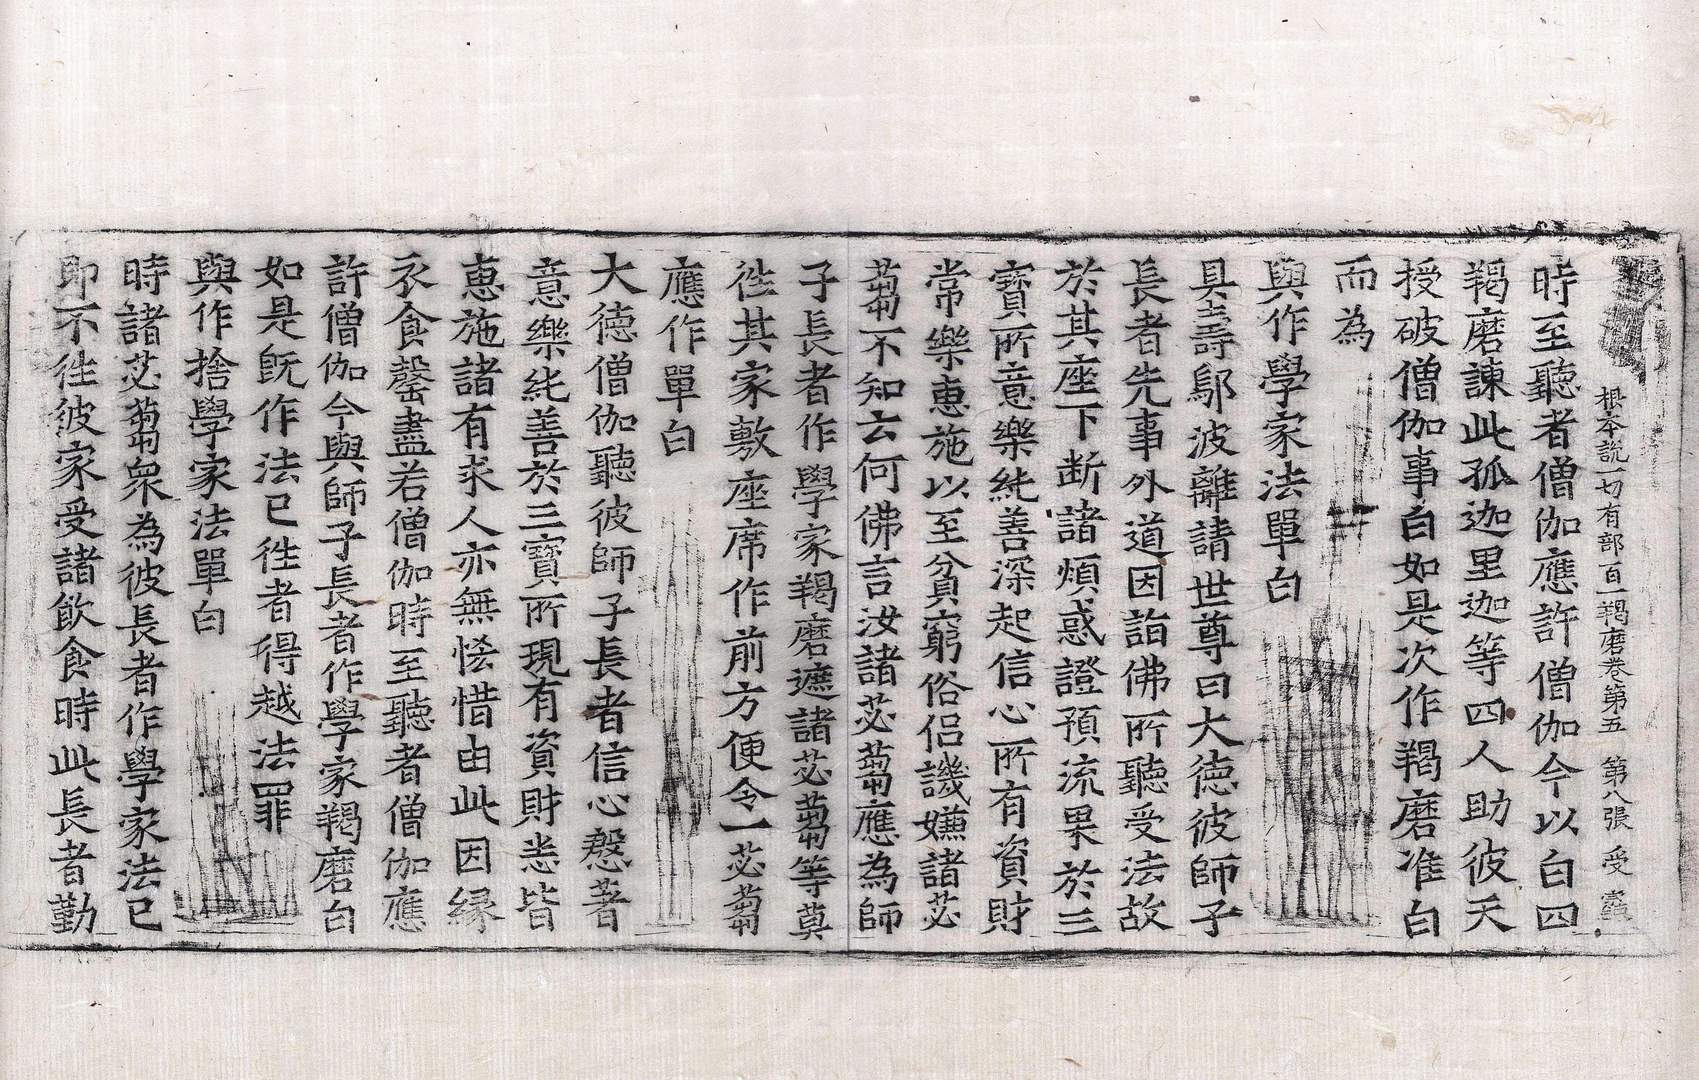 根本說一切有部百一羯磨卷第五 第八張 受
時至聽者僧伽應許僧伽今以白四
羯磨諫此孤迦里迦等四人助彼天
授破僧伽事白如是次作羯磨准白
而為
與作學家法單白
具壽鄔波離請世尊曰大德彼師子
長者先事外道因詣佛所聽受法故
於其座下断諸煩惑證預流果於三
寶所意樂純善深起信心所有資財
常樂惠施以至貧窮俗侶譏嫌諸苾
蒭不知云何佛言汝諸苾蒭應為師
子長者作學家羯磨遮諸苾蒭等莫
徃其家敷座席作前方便令一苾蒭
應作單白
大德僧伽聽彼師子長者信心慇著
意樂純善於三寶所現有資財悉皆
惠施諸有求人亦無悋惜由此因縁
衣食罄盡若僧伽時至聽者僧伽應
許僧伽今與師子長者作學家羯磨白
如是既作法已徃者得越法罪
與作捨學家法單白
時諸苾蒭衆為彼長者作學家法已
即不徃彼家受諸飲食時此長者勤